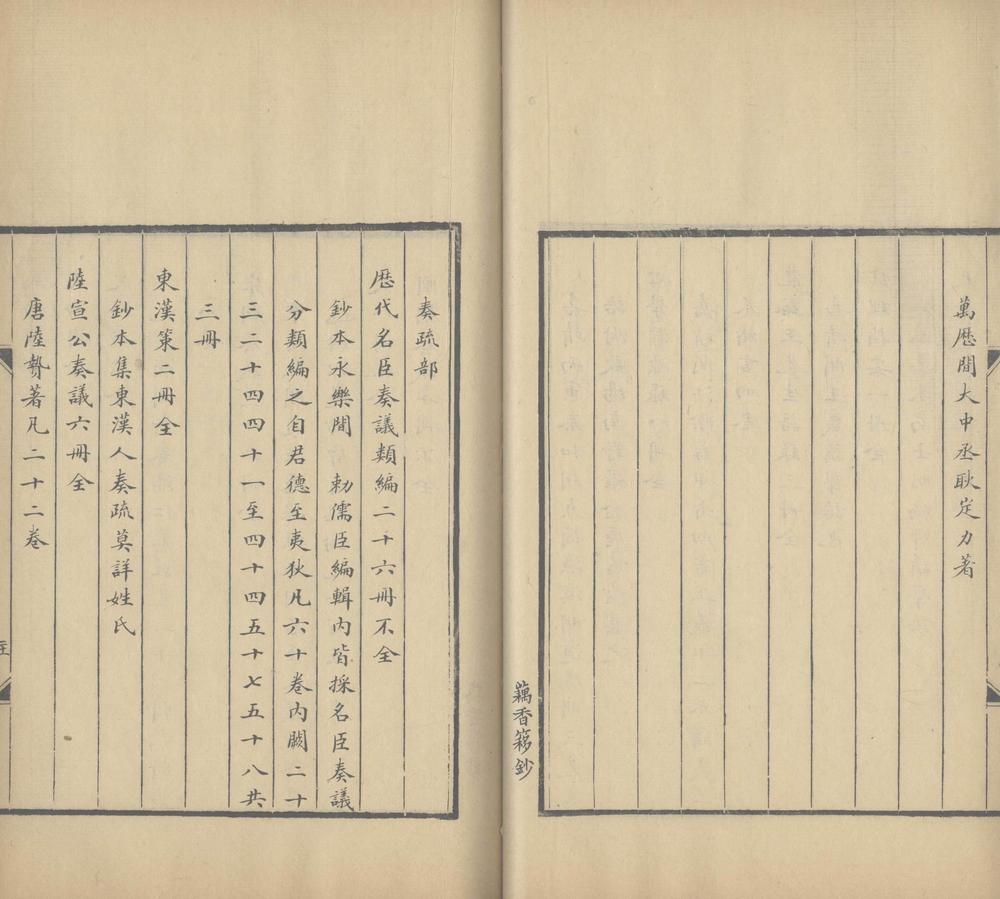 萬歷間大中丞耿定力著
藕香簃鈔
奏疏部
歷代名臣奏議類編二十六冊不全
鈔本永樂間 勅儒臣編輯內皆採名臣奏議
分類編之自君德至夷狄凡六十卷內闕二十
三二十四四十一至四十四五十七五十八共
三冊
東漢策二冊全
鈔本集東漢人奏疏莫詳姓氏
陸宣公奏議六冊全
唐陸贄著凡二十二卷